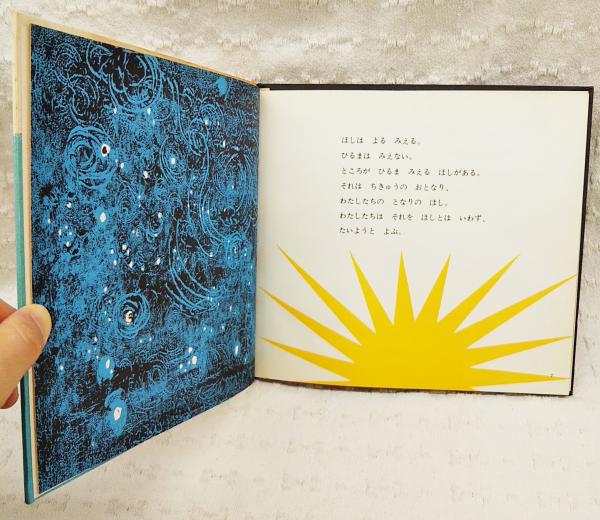 ほしは よる みえる。
ひるまは みえない。
ところが ひるま みえる ほしがある。
それは ちきゅうの おとなり、
わたしたちの となりの ほし。
わたしたちは それを ほしとは いわず、
たいようと よぶ。